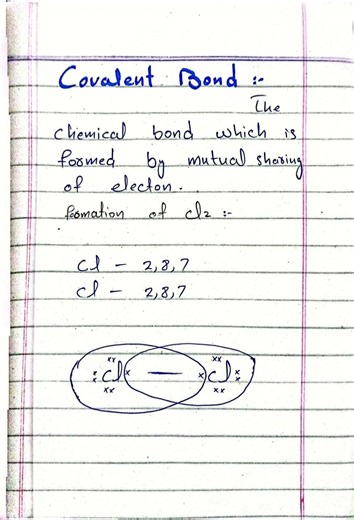 Covalent Bond :-
The
chemical bond which is
formed by mutual sharing
of electon.
formation of cl2 :-
Cl - 2,8,7
Cl - 2,8,7
Cl — Cl